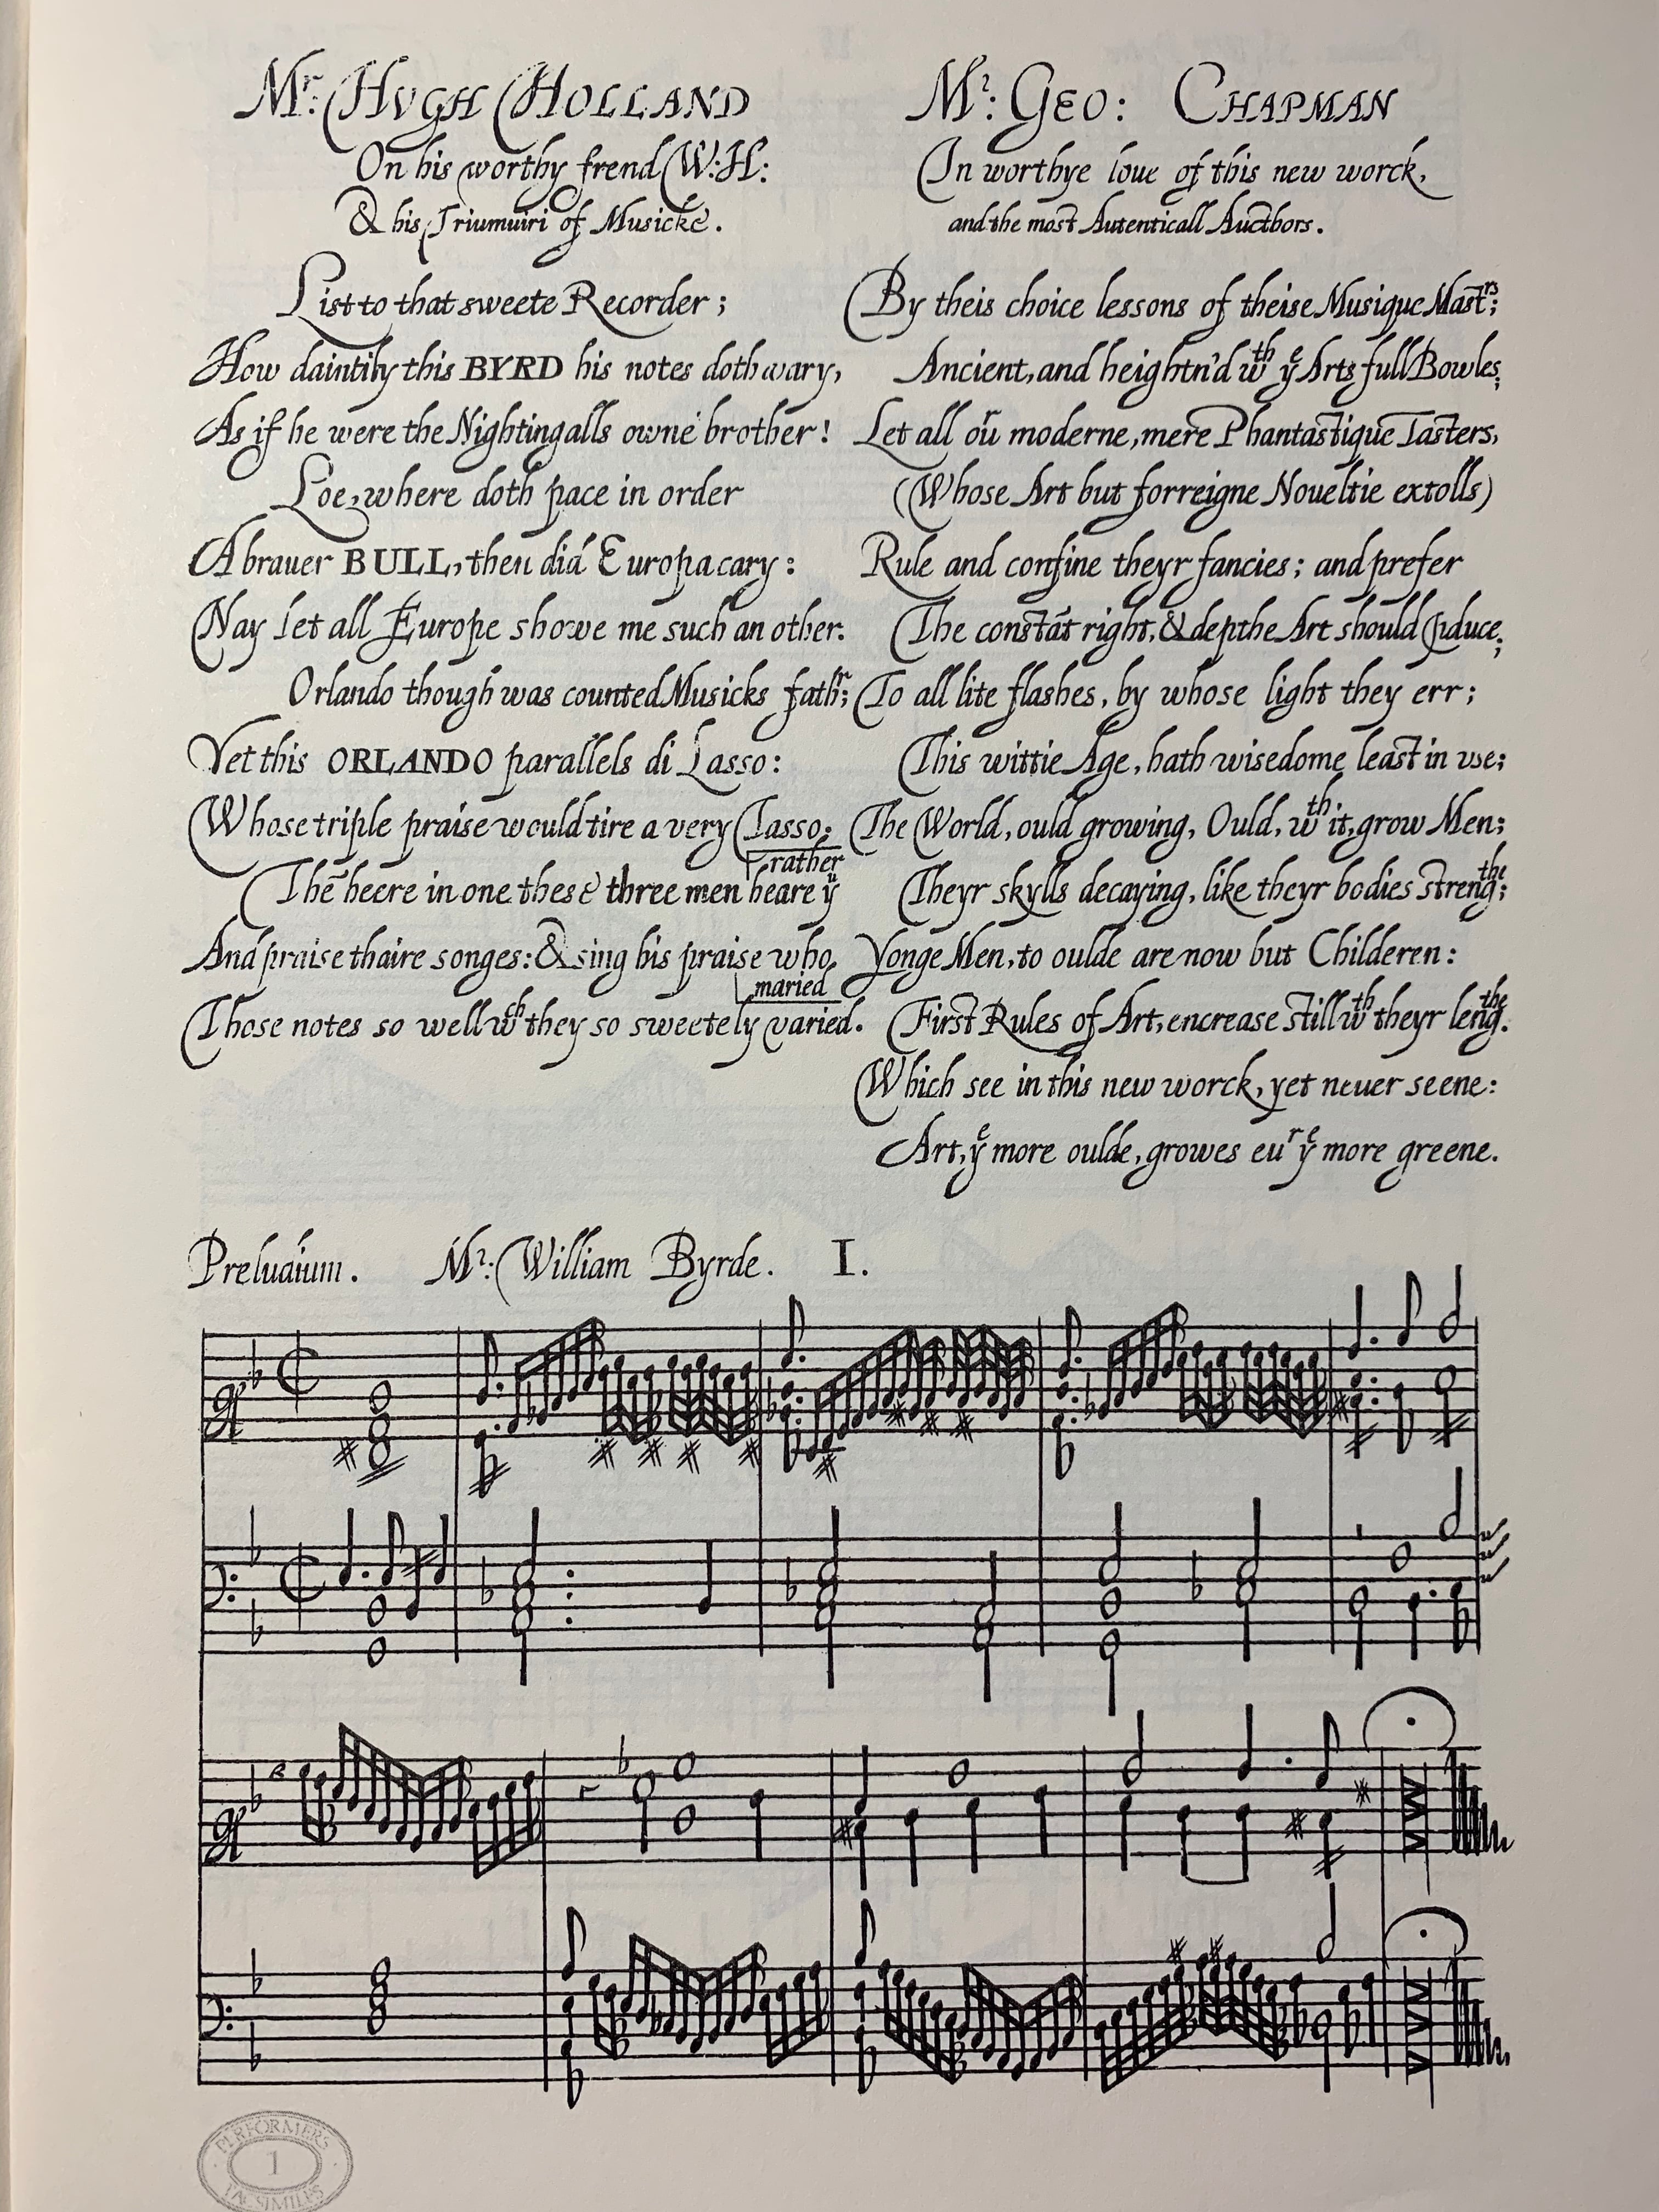 Mr: HVGH HOLLAND
On his worthy frend W:H:
& his Triumuiri of Musicke.
List to that sweete Recorder;
How daintily this BYRD his notes doth vary,
As if he were the Nightingalls owne brother!
Loe, where doth pace in order
A brauer BULL, then did Europa cary:
Nay let all Europe showe me such an other.
Orlando though was counted Musicks fathr;
Yet this ORLANDO parallels di Lasso:
Whose triple praise would tire a very Tasso;
The heere in one these three men heare yu rather
And praise thaire songes: & sing his praise who maried
Those notes so well wch they so sweetely varied.
Mr: GEO: CHAPMAN
In worthye loue of this new worck,
and the most Autenticall Aucthors.
By theis choice lessons of theise Musique Mastrs;
Ancient, and heightn'd wth ye Arts full Bowles,
Let all our moderne, mere Phantastique Tasters,
(Whose Art but forreigne Noueltie extolls)
Rule and confine theyr fancies; and prefer
The constāt right, & depthe Art should pduce,
To all lite flashes, by whose light they err;
This wittie Age, hath wisedome least in vse;
The World, ould growing, Ould, wth it, grow Men;
Theyr skylls decaying, like theyr bodies strengthe;
Yonge Men, to oulde are now but Childeren:
First Rules of Art, encrease still wth theyr lengthe.
Which see in this new worck, yet neuer seene:
Art, ye more oulde, growes eur ye more greene.
Preludium. Mr: William Byrde. I.
PERFORMERS
1
FACSIMILES